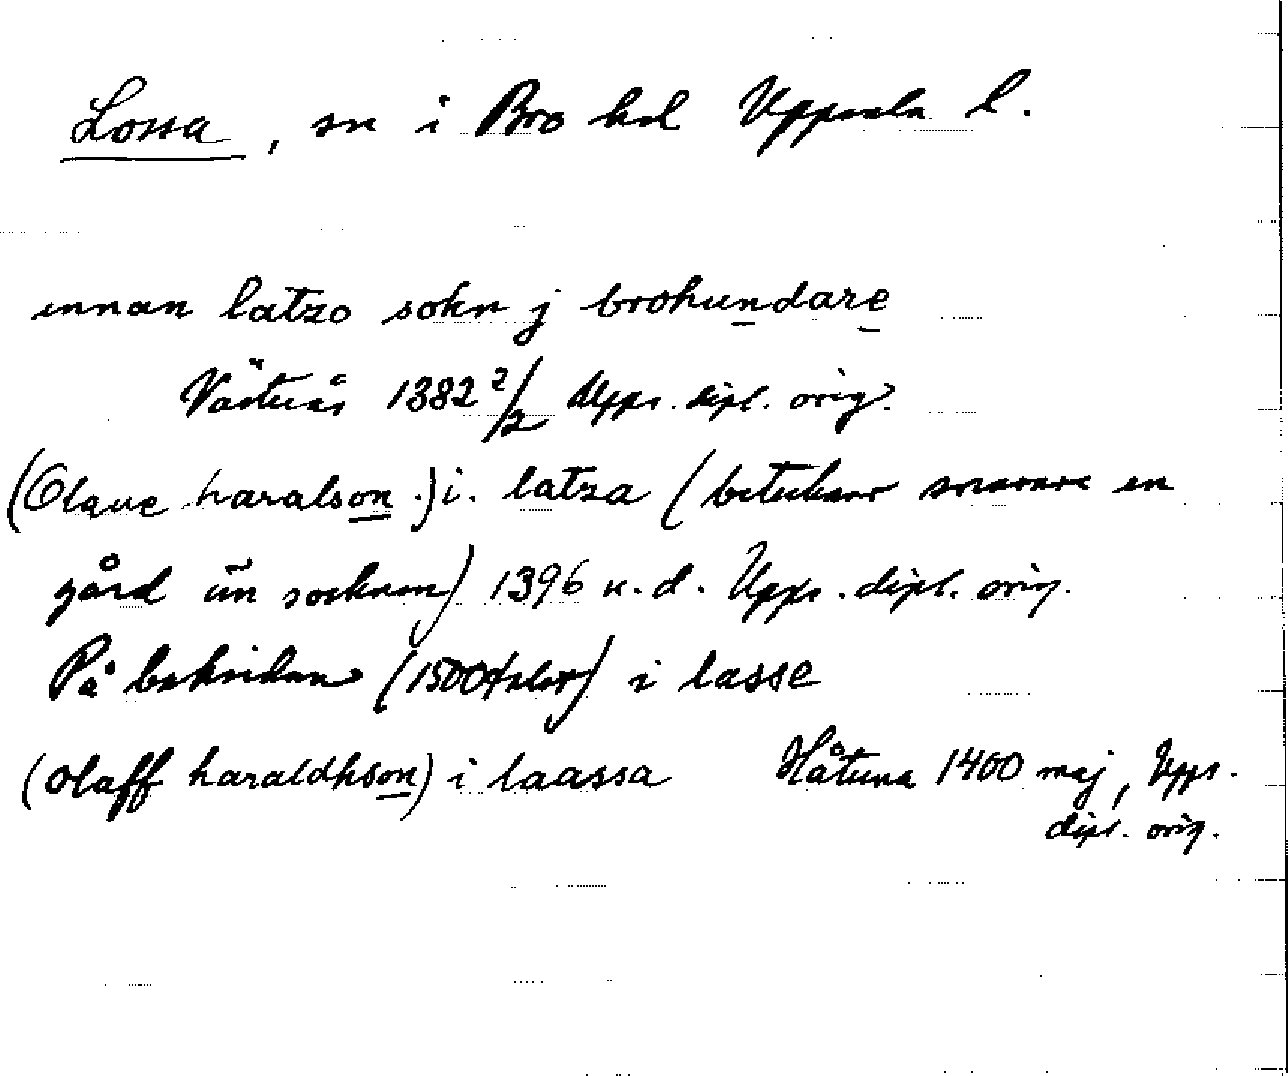 Lossa, sn i Bro hd Uppsala l.
innan latzo sokn j brohundare
Västerås 1382 2/2 Upps. dipl. orig.
(Olaue haralson.) i. latza (betecknar snarare en
gård än socknen) 1396 u.d. Upps. dipl. orig.
På baksidan (1500talet) i lasse
(Olaff haraldhson) i laassa Håtuna 1400 maj, Upps.
dipl. orig.